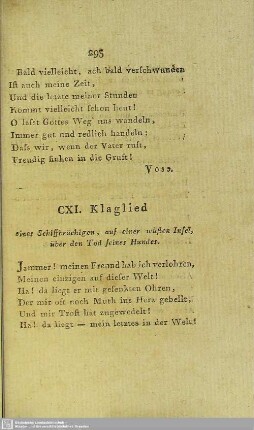 293
Bald vielleicht, ach bald verſchwunden
Iſt auch meine Zeit,
Und die letzte meiner Stunden
Kommt vielleicht ſchon heut!
O laſst Gottes Weg uns wandeln,
Immer gut und redlich handeln;
Daſs wir, wenn der Vater ruft,
Freudig ſinken in die Gruft!
Voss.
CXI. Klaglied
eines Schiffbrüchigen, auf einer wüſten Inſel,
über den Tod ſeines Hundes.
Jammer! meinen Freund hab ich verlohren,
Meinen einzigen auf dieſer Welt!
Ha! da liegt er mit geſenkten Ohren,
Der mir oft noch Muth ins Herz gebellt,
Und mir Troſt hat zugewedelt!
Ha! da liegt — mein letztes in der Welt!